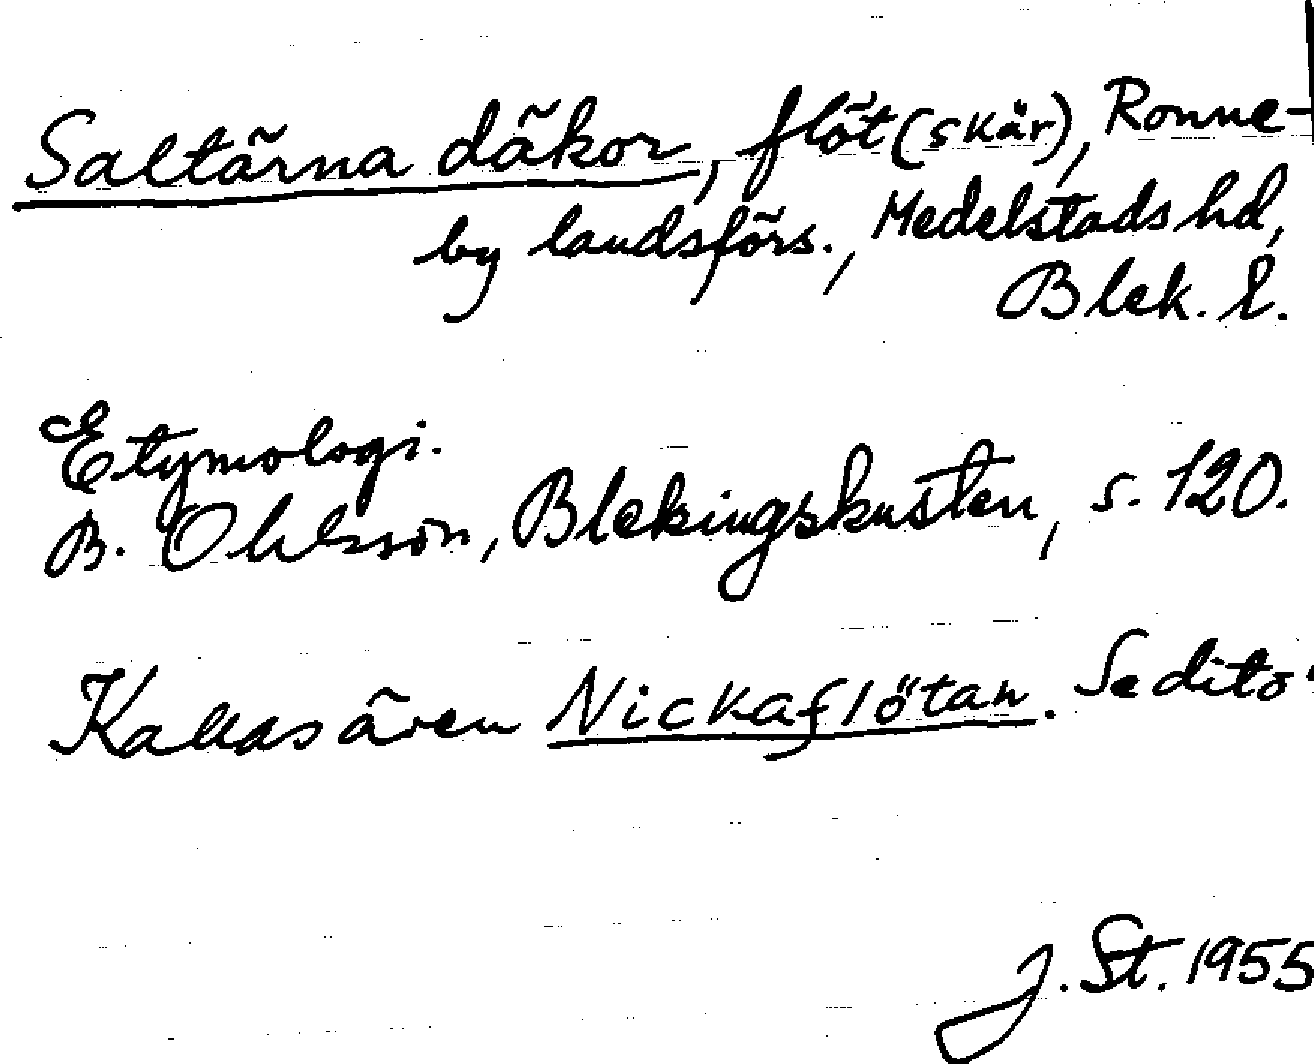 Saltärna däkor, flöt(skär), Ronne-
by landsförs., Medelstads hd,
Blek. l.
Etymologi.
B. Ohlsson, Blekingskusten, s. 120.
Kallas även Nickaflötan. Se dito.
J. St. 1955